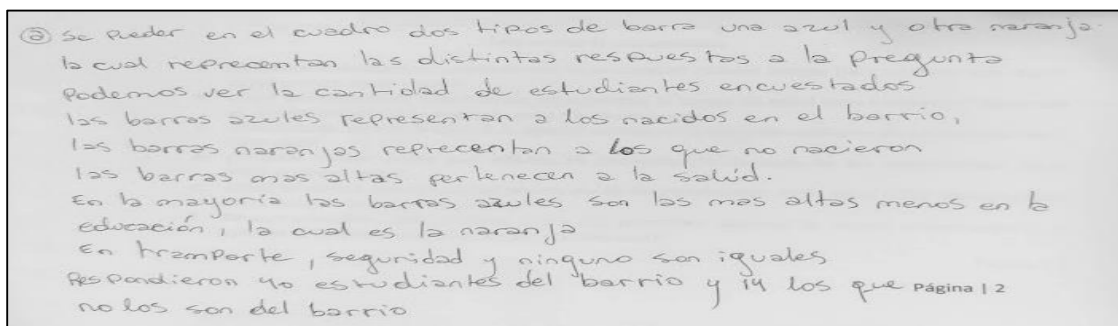 ⓐ Se pueder en el cuadro dos tipos de barra una azul y otra naranja.
la cual reprecentan las distintas respuestas a la pregunta
Podemos ver la cantidad de estudiantes encuestados
las barras azules representan a los nacidos en el barrio,
las barras naranjas reprecentan a los que no nacieron
las barras mas altas pertenecen a la salud.
En la mayoría las barras azules son las mas altas menos en la
educación, la cual es la naranja
En tramporte, seguridad y ninguno son iguales
Respondieron 40 estudiantes del barrio y 14 los que Página | 2
no los son del barrio